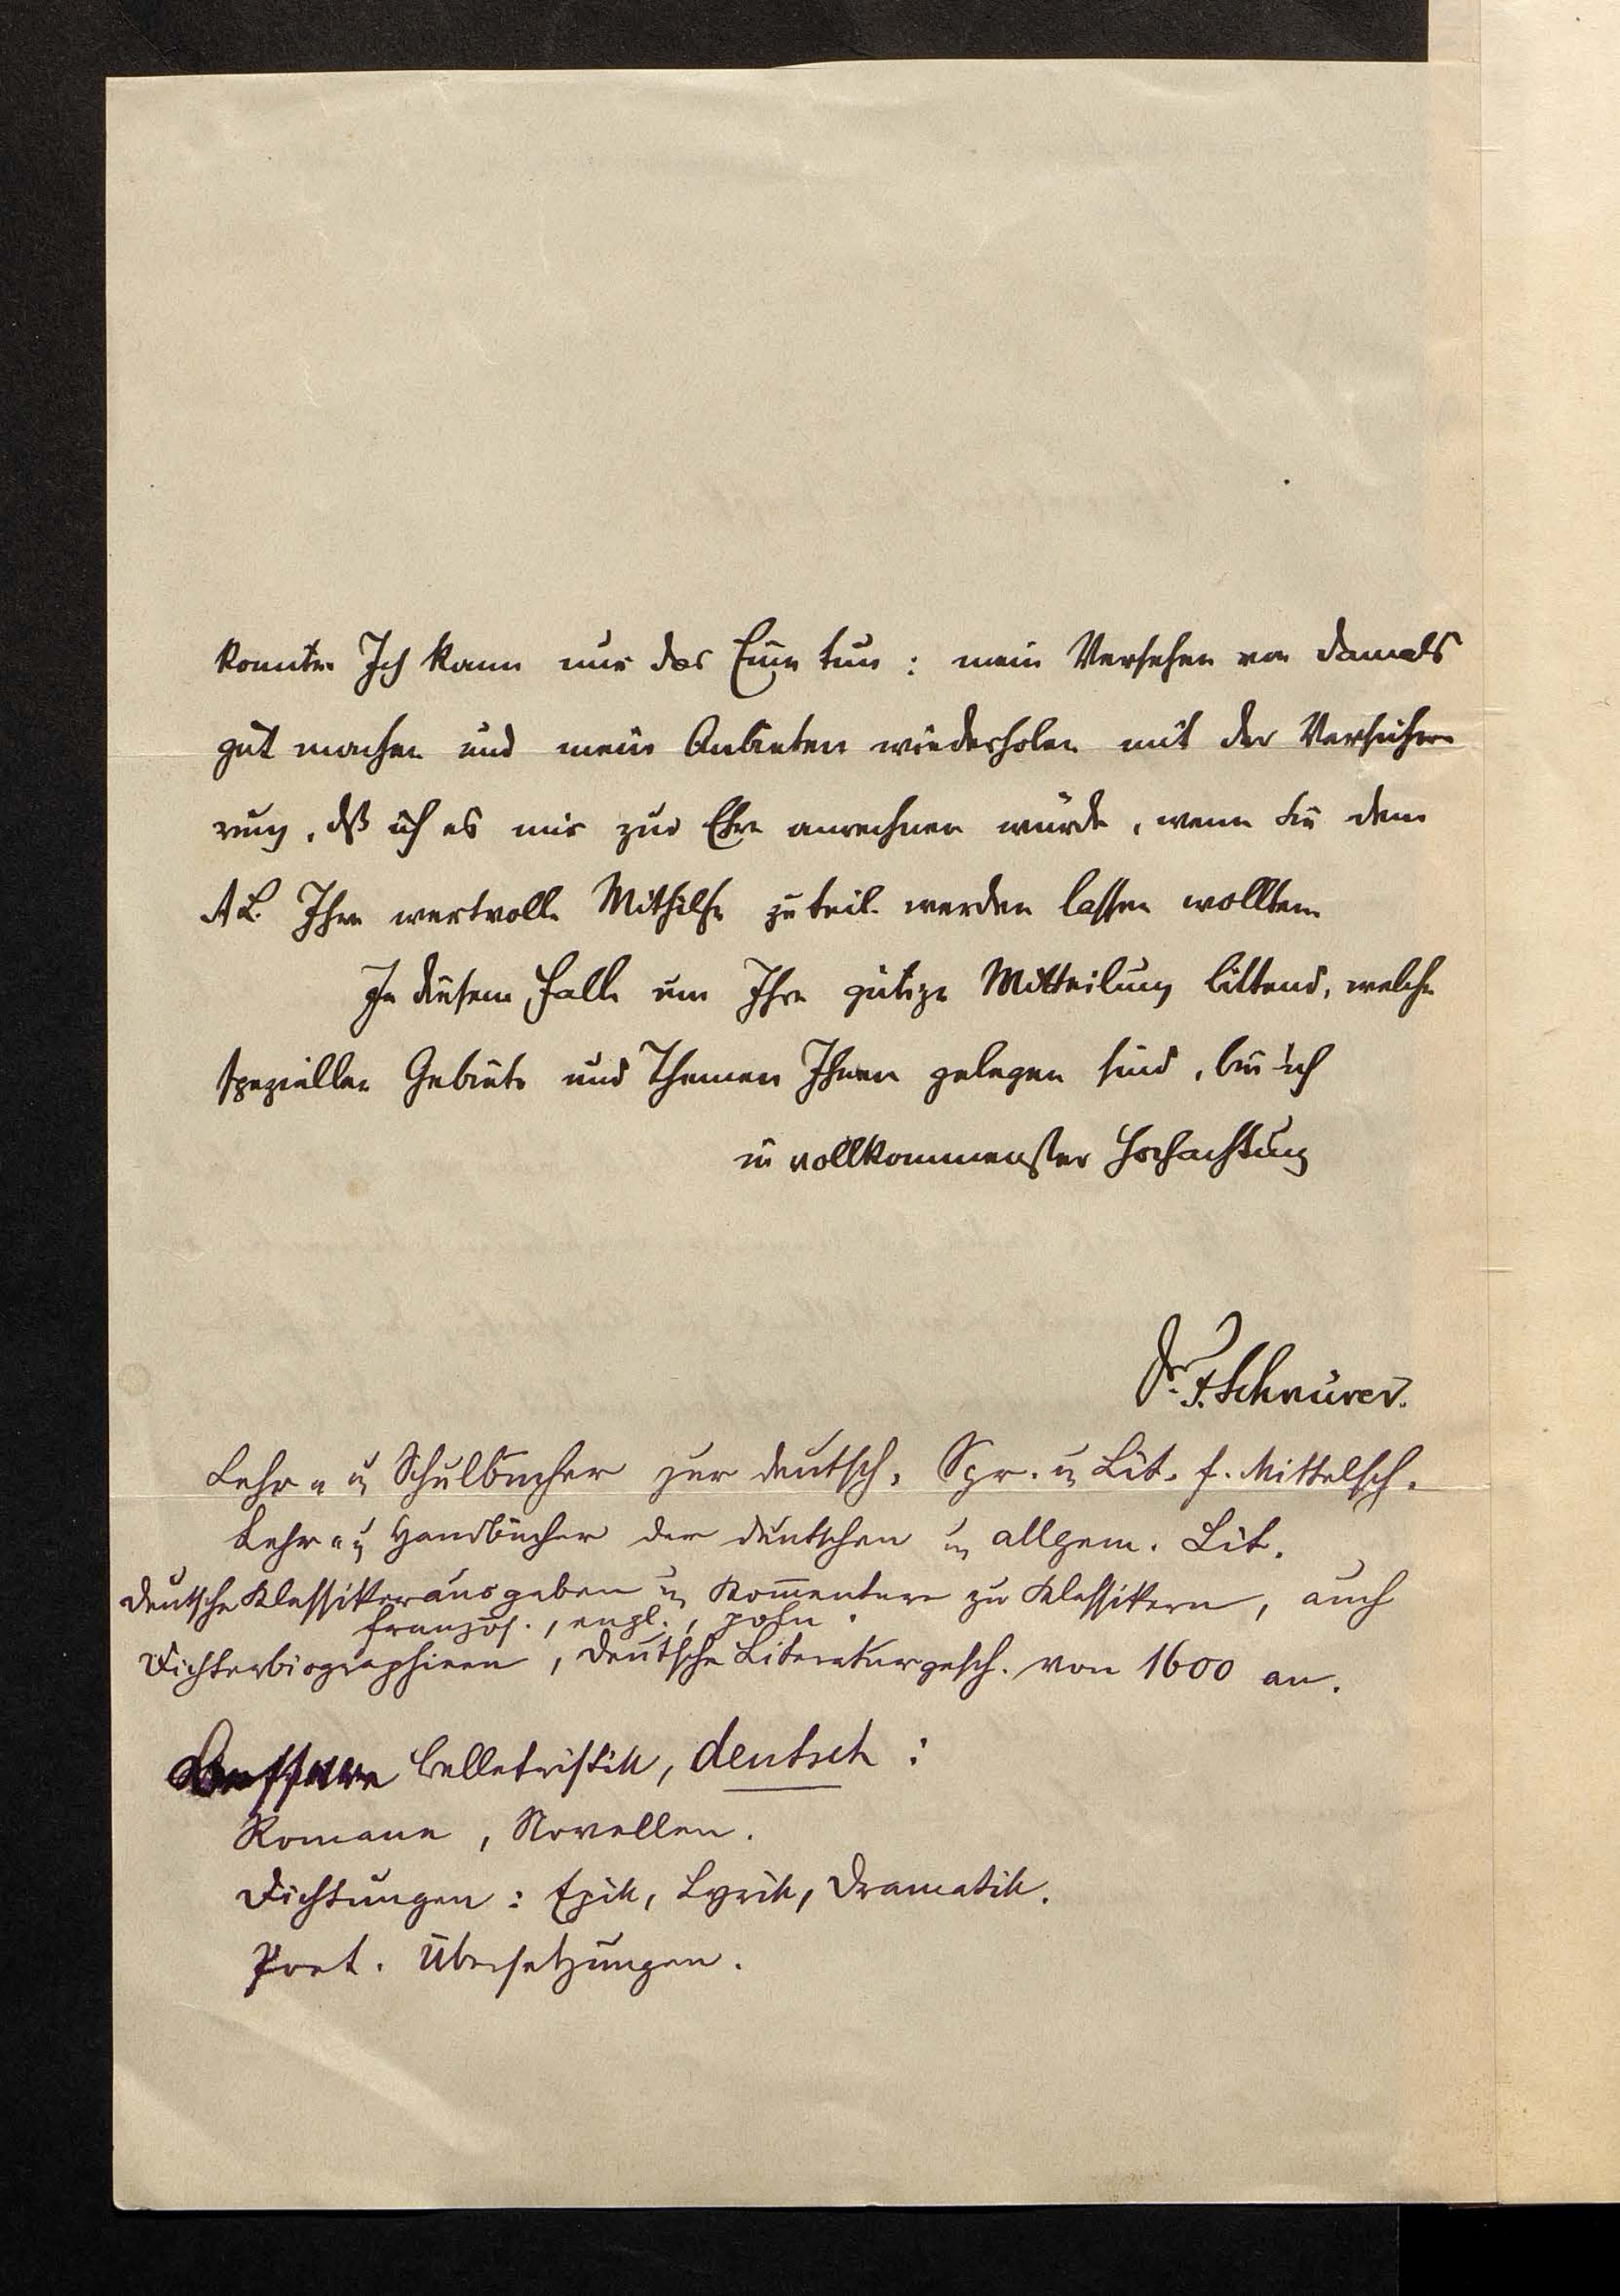 konnte. Ich kann nur das Eine tun: mein Versehen von damals
gut machen und mein Anbieten wiederholen mit der Versiche-
rung, dß ich es mir zur Ehre anrechnen würde, wenn Sie dem
AL. Ihre wertvolle Mithilfe zuteil werden lassen wollten.
In diesem Falle um Ihre gütige Mitteilung bittend, welche
speziellen Gebiete und Themen Ihnen gelegen sind, bin ich
in vollkommenster Hochachtung
Dr. F. Schnürer.
Lehr- u Schulbücher zur deutsch. Spr. u Lit. f. Mittelsch.
Lehr- u Handbücher der deutschen u allgem. Lit.
Deutsche Klassikerausgaben u Kommentare zu Klassikern, auch
französ., engl., poln.
Dichterbiographieen, Deutsche Literaturgesch. von 1600 an.
Bessere Belletristik, deutsch:
Romane, Novellen.
Dichtungen: Epik, Lyrik, Dramatik.
Poet. Übersetzungen.